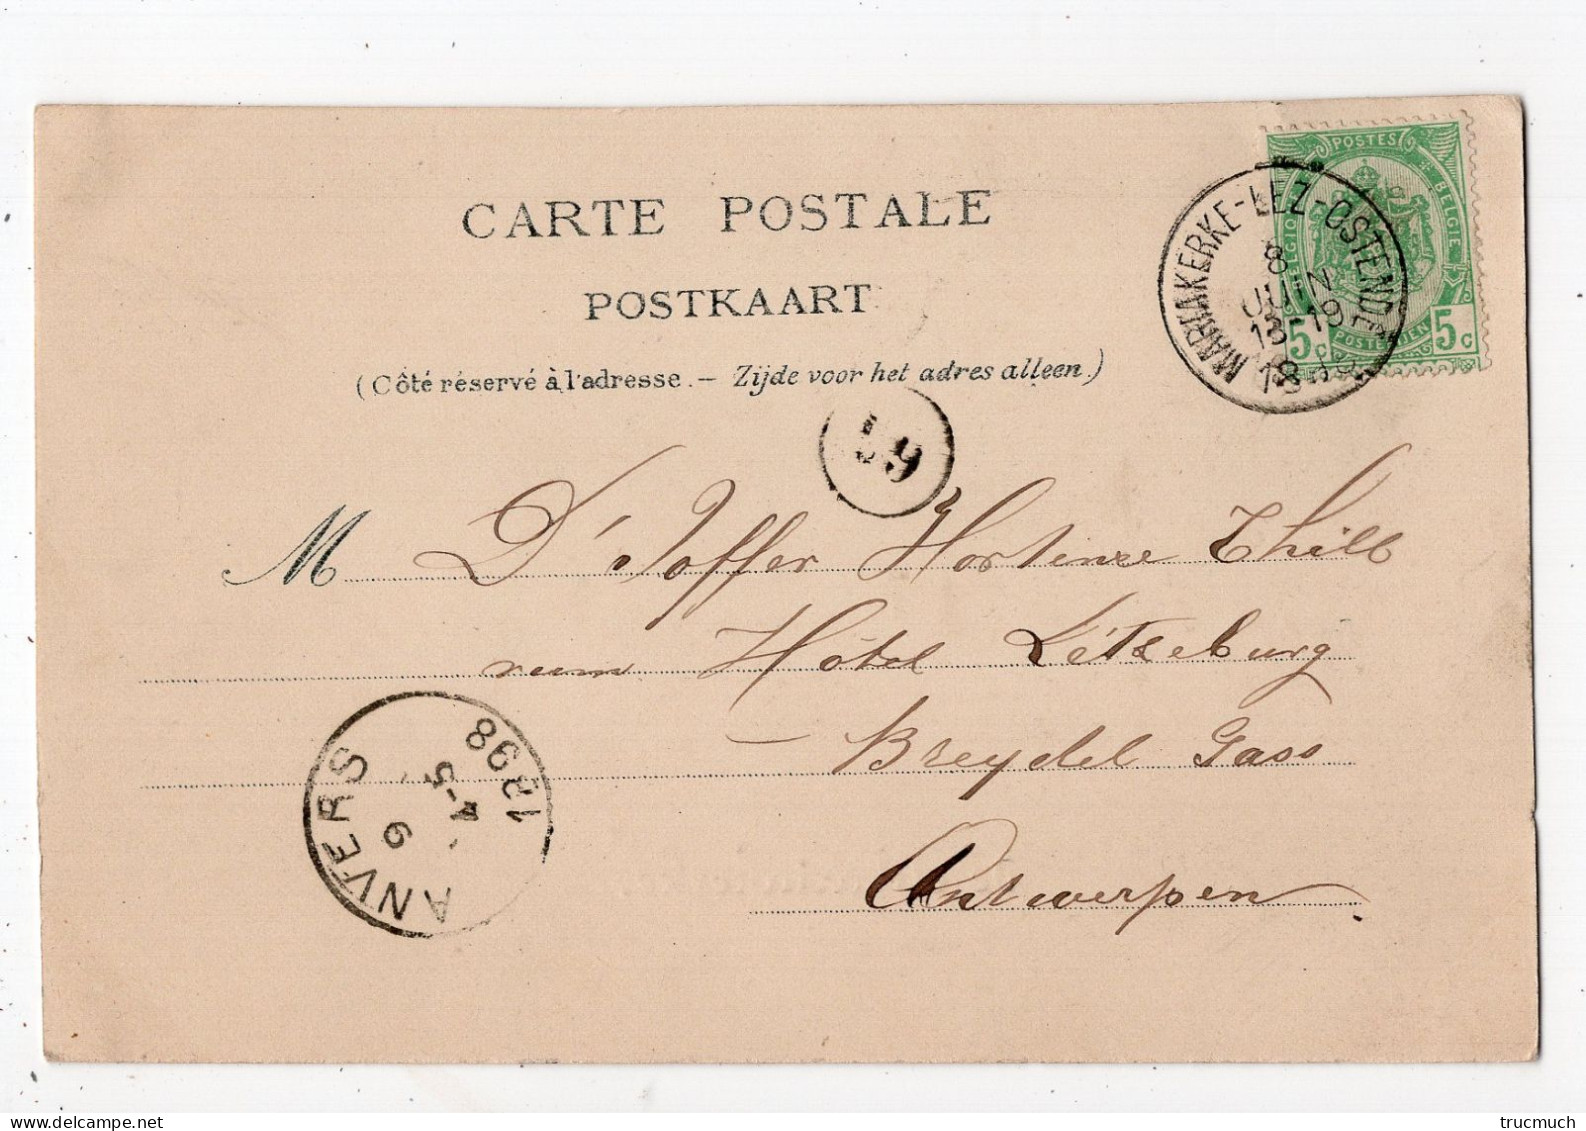 CARTE POSTALE
POSTKAART
(Côté réservé à l'adresse. – Zijde voor het adres alleen.)
POSTES
BELGIQUE
BELGIE
5c POSTERIJEN 5c
MARIAKERKE-LEZ-OSTENDE
8
JUIN
18-19
1898
M D'Joffer Hortense Thill
vum Hôtel Létzeburg
– Breydel Gass
Antwerpen
ANVERS
9
4-5
1898
trucmuch